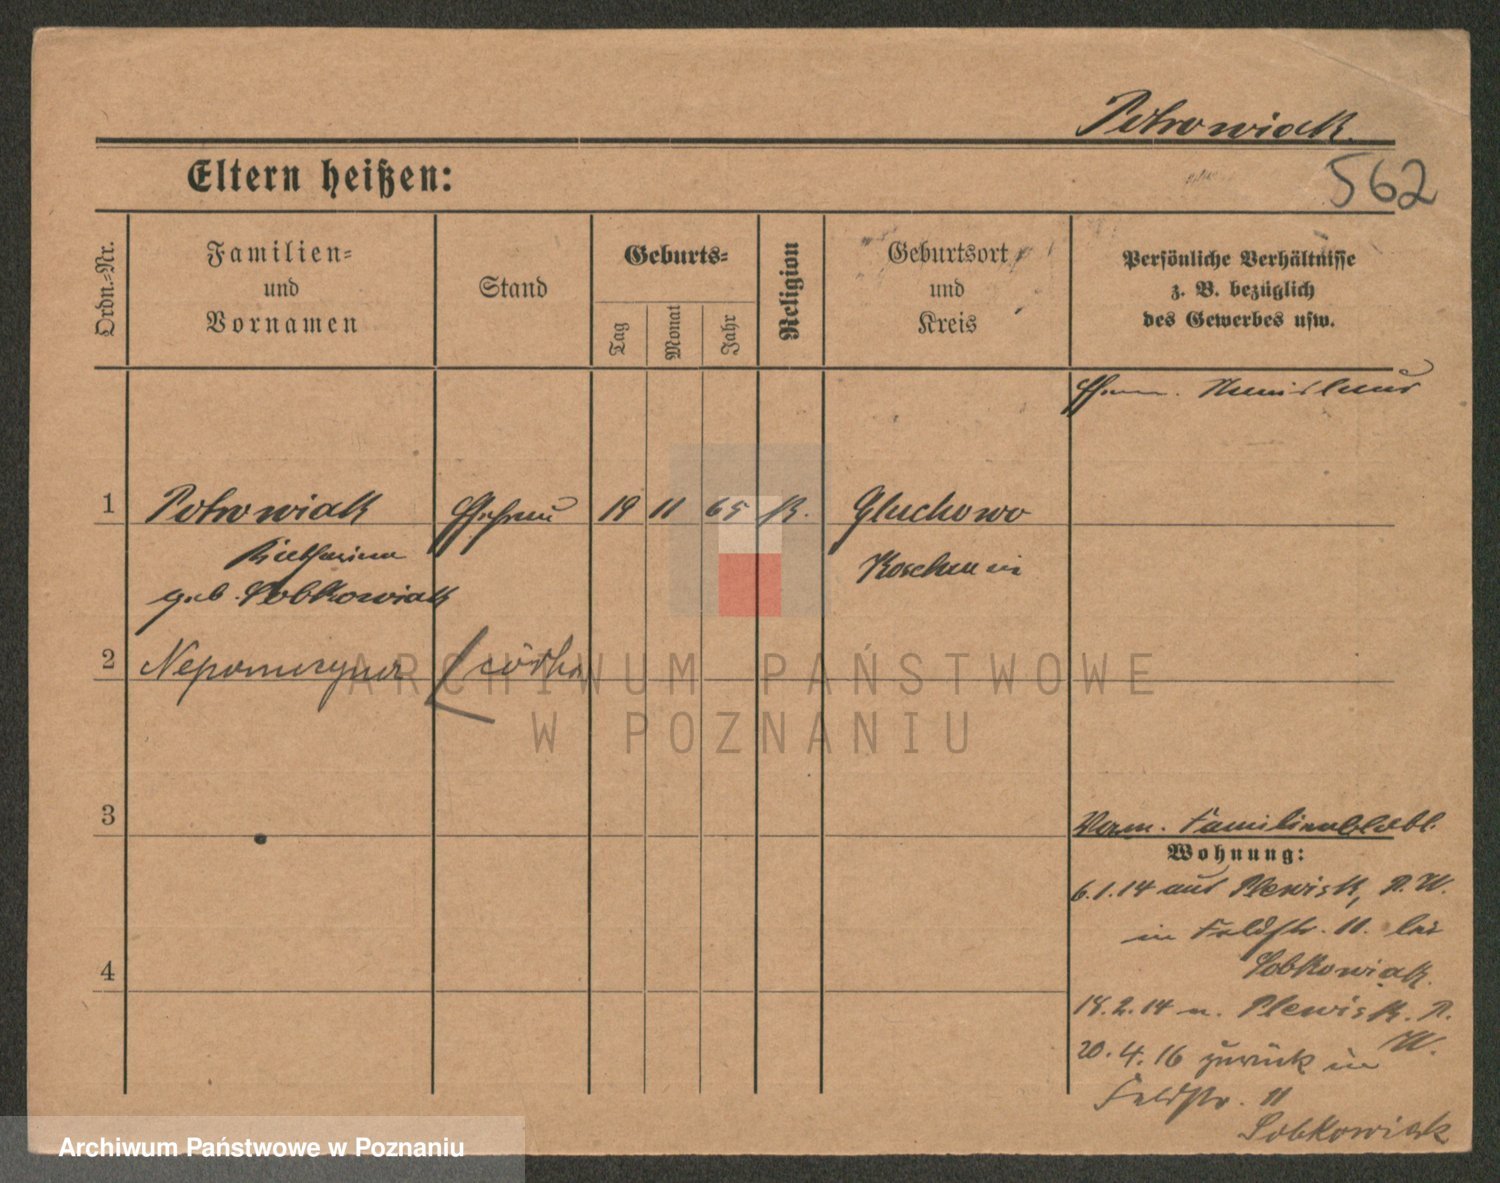 Potrowiak
562
Eltern heißen:
Ordn.-Nr.
Familien-
und
Vornamen
Stand
Geburts-
Tag
Monat
Jahr
Religion
Geburtsort
und
Kreis
Persönliche Verhältnisse
z. B. bezüglich
des Gewerbes usw.
1
Potrowiak
Ehefrau
19
11
65
K.
Gluchowo
Katharina
Koschmin
geb. Sobkowiak
2
Nepomucyna
córka
ARCHIWUM PAŃSTWOWE
W POZNANIU
3
Familienblatt
Wohnung:
6.1.14 aus Plewisk, P. W.
in Feldstr. 11. bei
Sobkowiak.
4
18.2.14 n. Plewisk. P.
W.
20.4.16 zurück in
Feldstr. 11
Sobkowiak
Archiwum Państwowe w Poznaniu